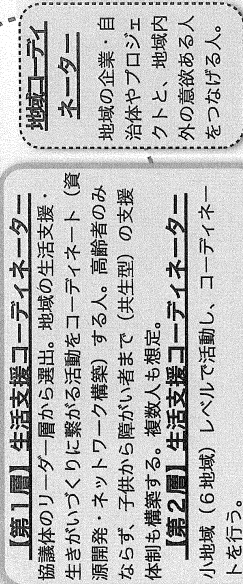 【第1層】生活支援コーディネーター
協議体のリーダー層から選出。地域の生活支援・
生きがいづくりに繋がる活動をコーディネート（資
源開発・ネットワーク構築）する人。高齢者のみ
ならず、子供から障がい者まで（共生型）の支援
体制も構築する。複数人も想定。
【第2層】生活支援コーディネーター
小地域（6地域）レベルで活動し、コーディネー
トを行う。
地域コーディ
ネーター
地域の企業・自
治体やプロジェ
クトと、地域内
外の意欲ある人
をつなげる人。